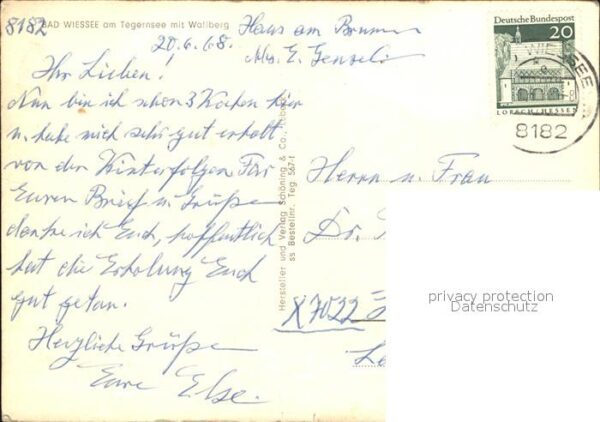 8182 BAD WIESSEE am Tegernsee mit Wallberg
Haus am Brunnen
20.6.68.
Ihr Lieben!
Nun bin ich schon 3 Wochen hier
u. habe mich sehr gut erholt
von den Winterfolgen. Für
Euren Brief u. Grüße
danke ich Euch, hoffentlich
hat die Erholung Euch
gut getan.
Herzliche Grüße
Eure Else.
Hersteller und Verlag Schöning & Co., Lübeck
Bestellnr. Teg. 567-f
Deutsche Bundespost
20
LORSCH/HESSEN
WIESSEE
8182
Herrn u. Frau
Dr.
X7022
privacy protection
Datenschutz